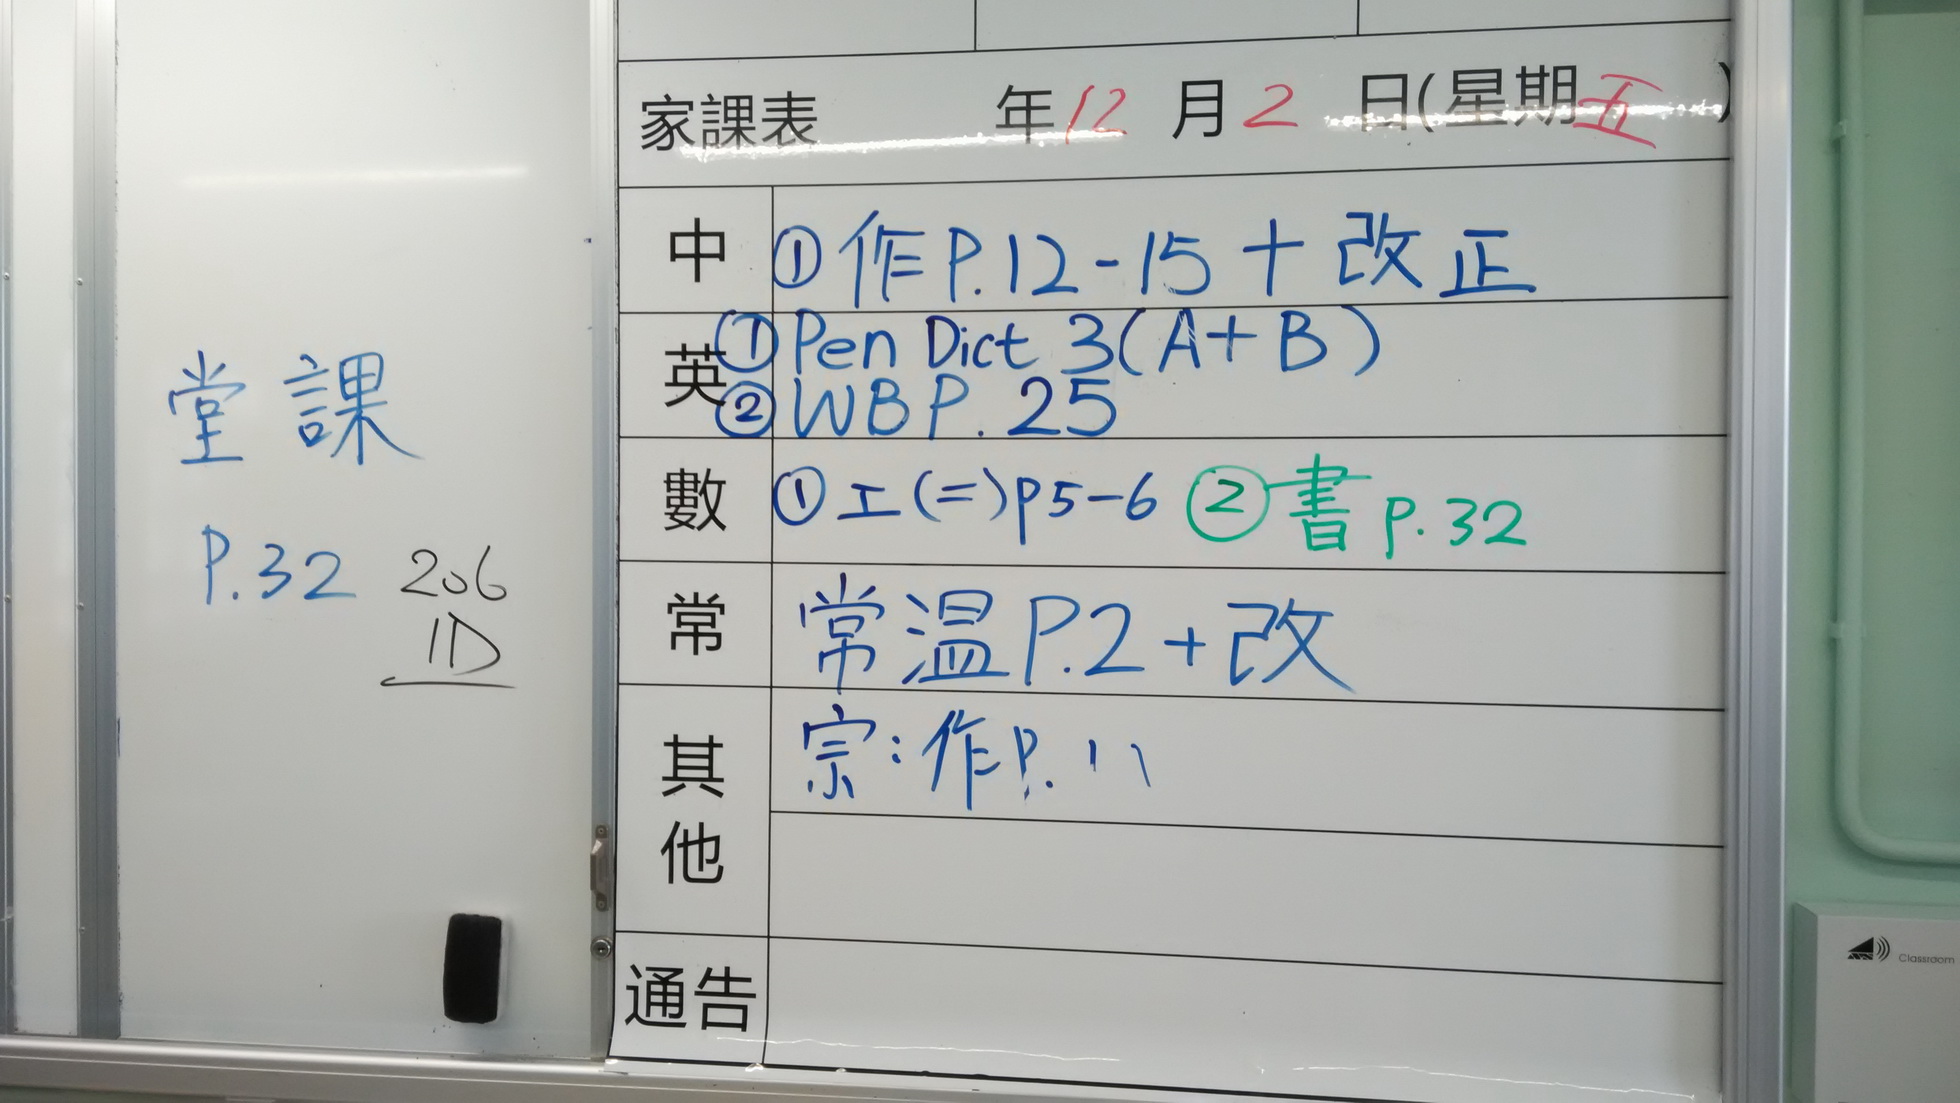 堂課
P.32
206
1D
家課表 年12月2日(星期五)
中 ①作P.12-15+改正
英 ①Pen Dict 3(A+B)
②WB P.25
數 ①工(=)p5-6 ②書p.32
常 常温P.2+改
其他 宗:作P.11
通告
Classroom